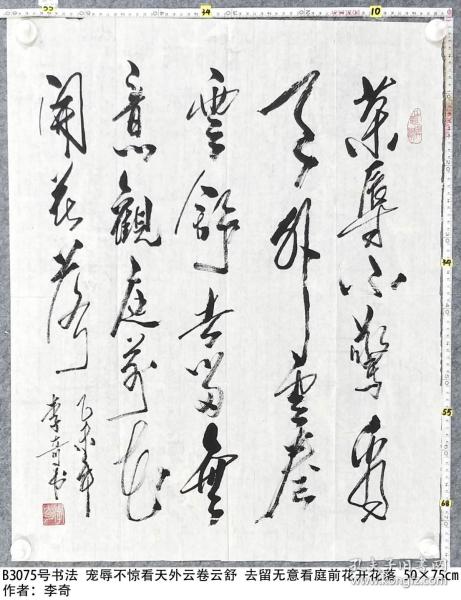 荣辱不驚看
天外雲卷
雲舒去留無
意觀庭前花
開花落
乙未年
李奇书
B3075号书法 宠辱不惊看天外云卷云舒 去留无意看庭前花开花落 50×75cm
作者：李奇